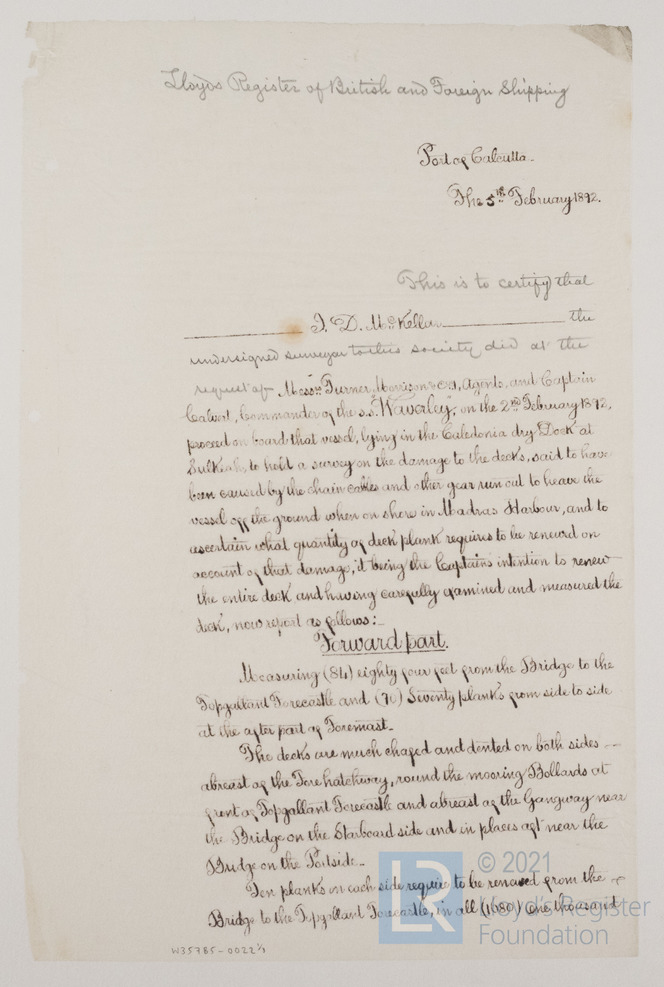 Lloyds Register of British and Foreign Shipping
Port of Calcutta.
The 5th February 1892.
This is to certify that
J. D. McKellar the
undersigned surveyor to this society did at the
request of Messrs Turner Morrison & Co, Agents, and Captain
Calvert, Commander of the s.s. "Waverley", on the 2nd February 1892,
proceed on board that vessel, lying in the Caledonia dry Dock at
Sulkeah, to hold a survey on the damage to the decks, said to have
been caused by the chain cables and other gear run out to heave the
vessel off the ground when on shore in Madras Harbour, and to
ascertain what quantity of deck plank requires to be renewed on
account of that damage, it being the Captains intention to renew
the entire deck and having carefully examined and measured the
deck, now report as follows:-
Forward part.
Measuring (84) eighty four feet from the Bridge to the
Topgallant Forecastle and (70) Seventy planks from side to side
at the after part of Foremast.
The decks are much chafed and dented on both sides
abreast of the Fore hatchway, round the mooring Bollards at
front of Topgallant Forecastle and abreast of the Gangway near
the Bridge on the Starboard side and in places aft near the
Bridge on the Port side.
Ten planks on each side require to be renewed from the
Bridge to the Topgallant Forecastle, in all (1680) One thousand
W35785-0022 1/3
LR © 2021
Lloyd's Register
Foundation